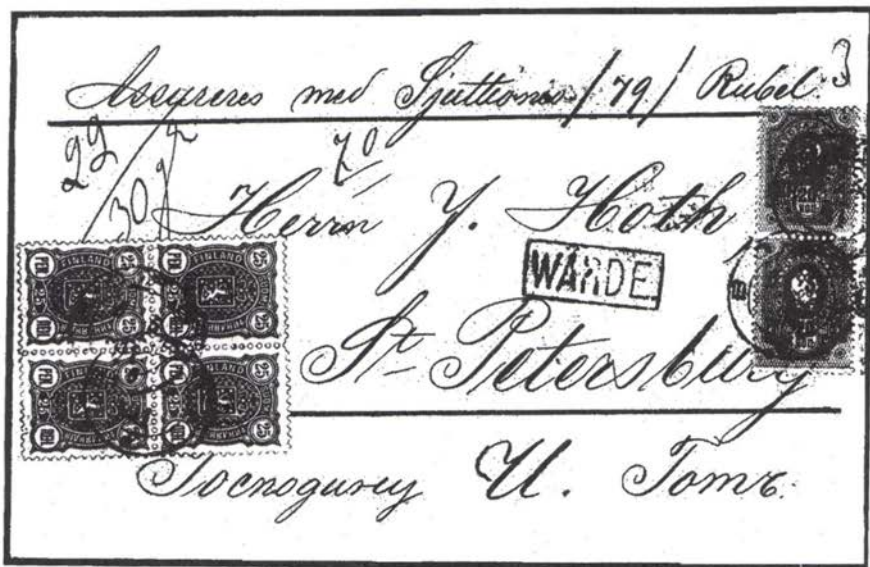 Assureres med Sjuttionio /79/ Rubel 3
29
30
70
Herrn J. Hoth
WÄRDE
St Petersburg
Господину И. Готъ.
FINLAND
25 PEN. 25